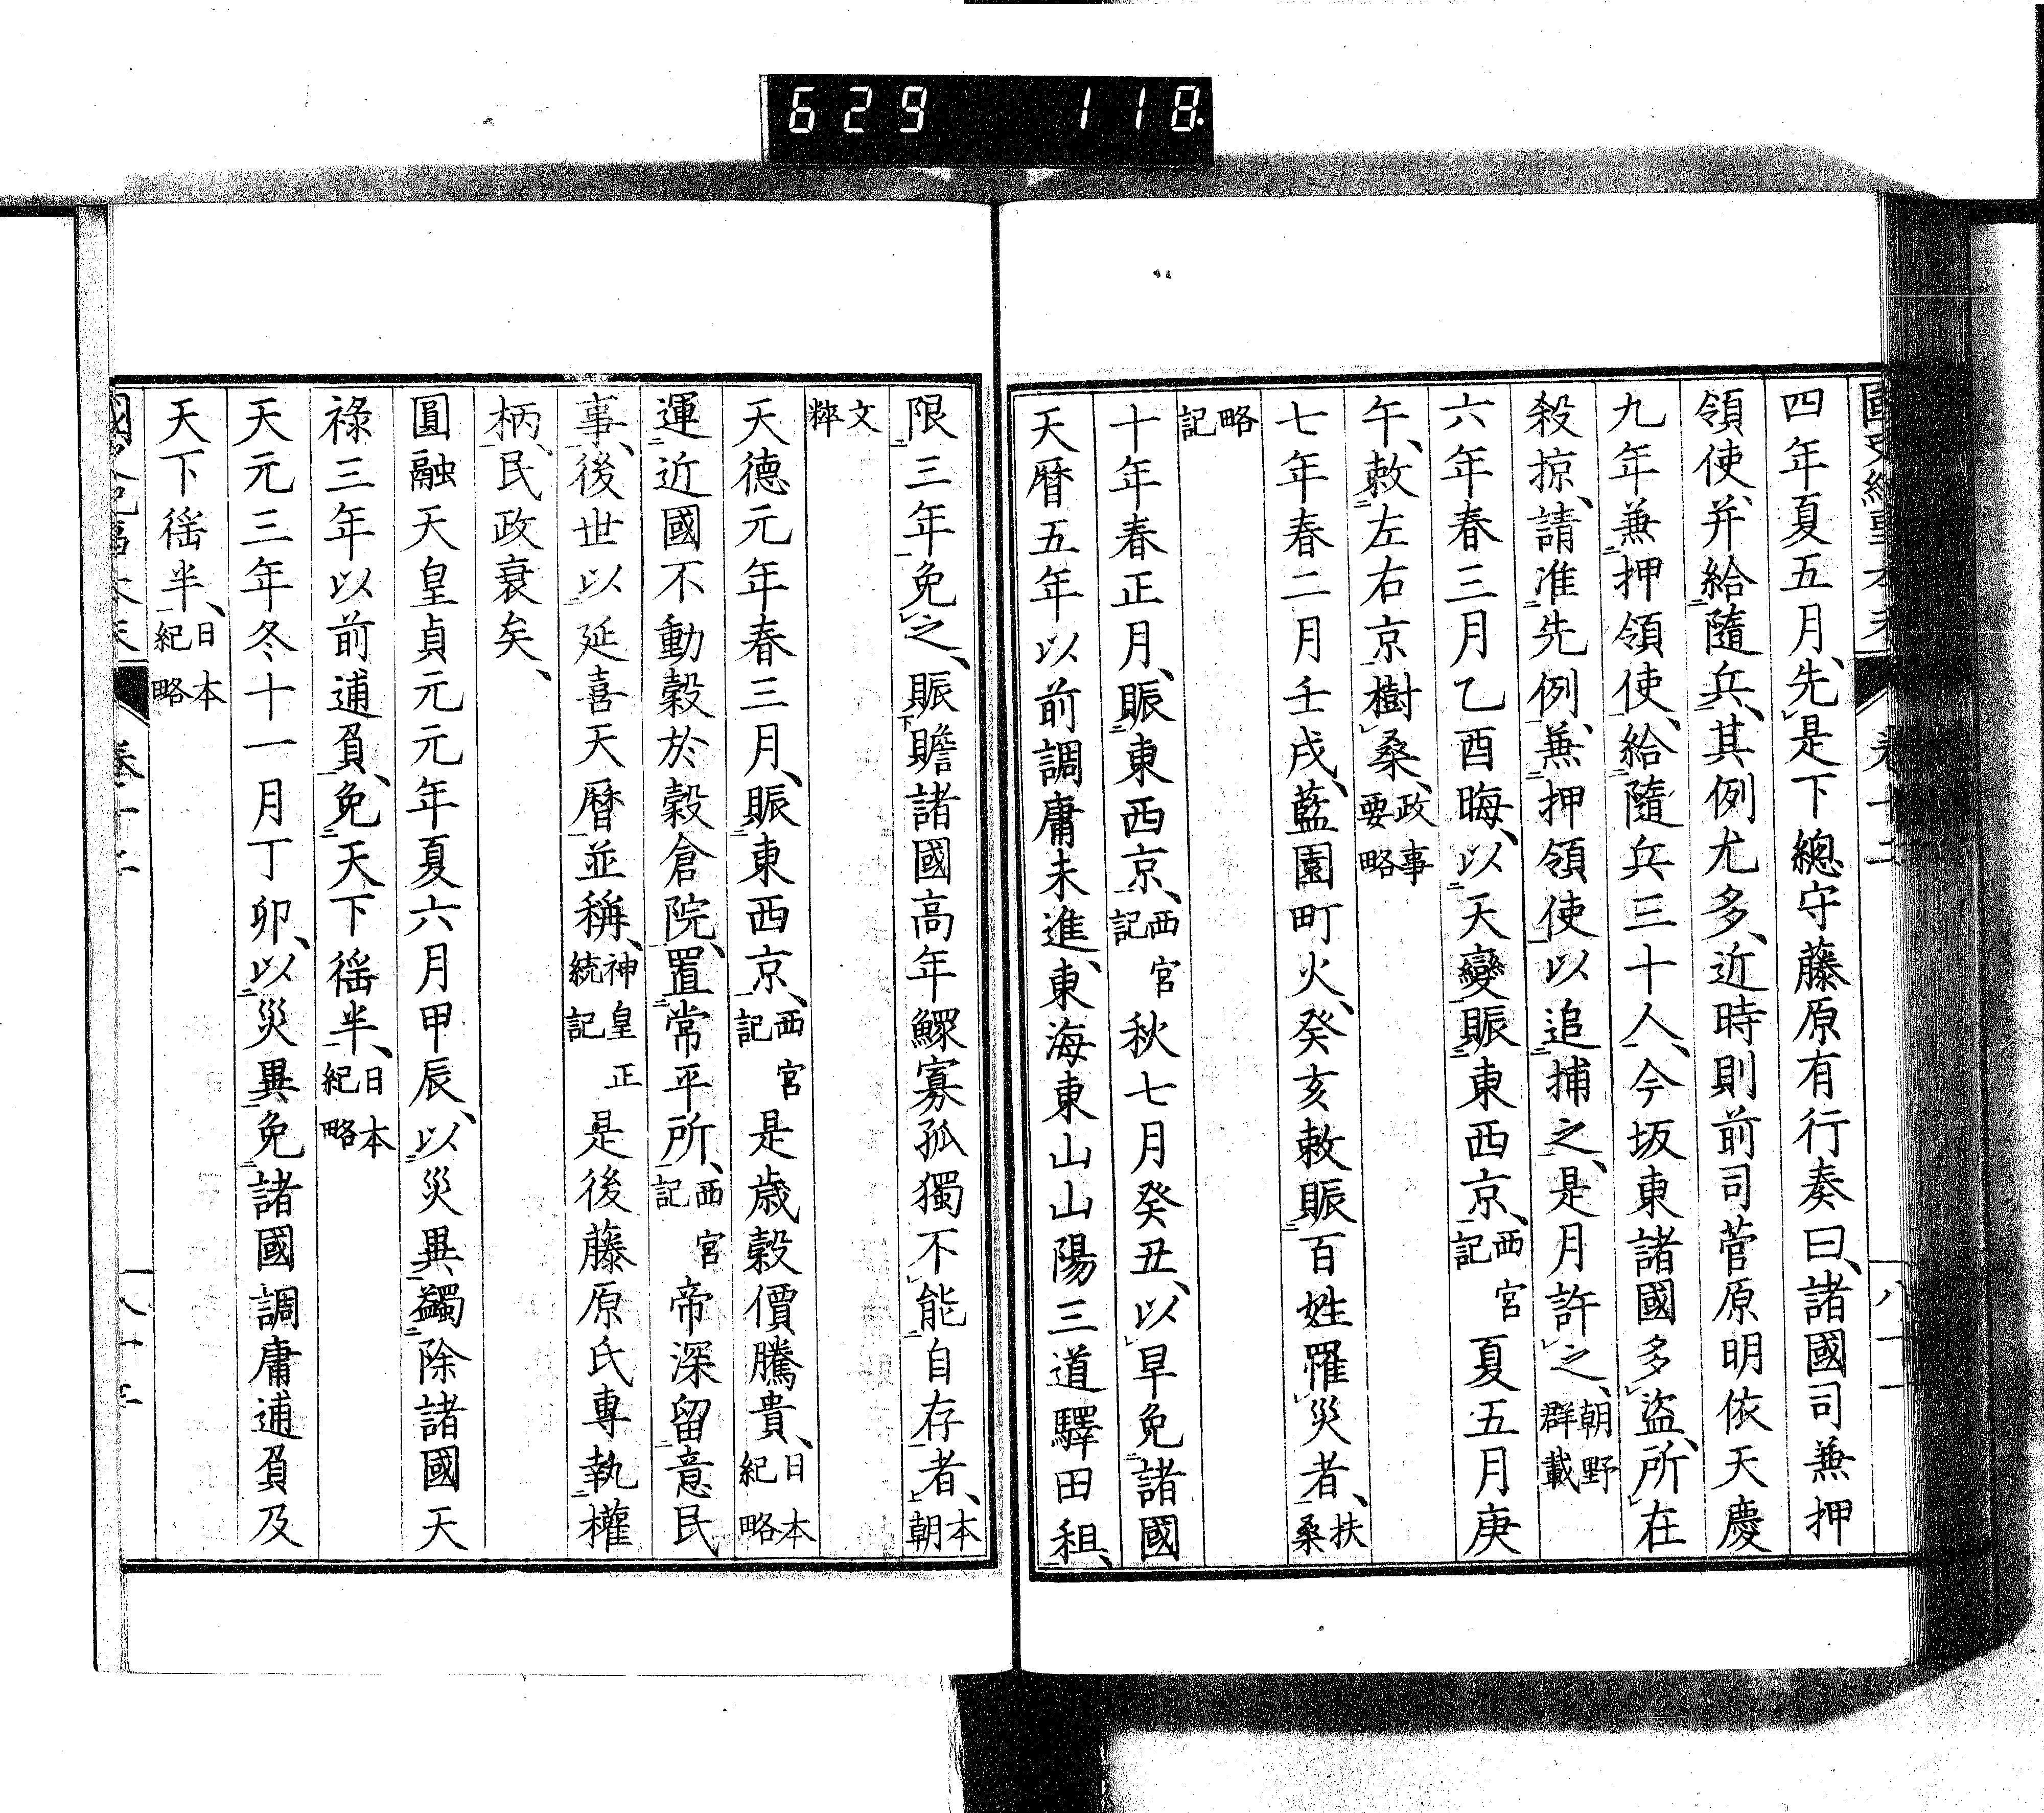 629 118
四年夏五月、先是下總守藤原有行奏曰、諸國司兼押
領使、并給隨兵、其例尤多、近時則前司菅原明依天慶
九年兼押領使、給隨兵三十人、今坂東諸國多盜、所在
殺掠、請准先例、兼押領使以追捕之、是月許之、朝野群載
六年春三月乙酉晦、以天變賑東西京、西宮記 夏五月庚
午、敕左右京樹桑、政事要略
七年春二月壬戌、藍園町火、癸亥敕賑百姓罹災者、扶桑
略記
十年春正月、賑東西京、西宮記 秋七月癸丑、以旱免諸國
天曆五年以前調庸未進、東海東山山陽三道驛田租、
限三年免之、賑贍諸國高年鰥寡孤獨不能自存者、本朝
文粹
天德元年春三月、賑東西京、西宮記 是歲穀價騰貴、日本紀略
運近國不動穀於穀倉院、置常平所、西宮記 帝深留意民
事、後世以延喜天曆並稱、神皇正統記 是後藤原氏專執權
柄、民政衰矣、
圓融天皇貞元元年夏六月甲辰、以災異蠲除諸國天
祿三年以前逋負、免天下徭半、日本紀略
天元三年冬十一月丁卯、以災異免諸國調庸逋負及
天下徭半、日本紀略